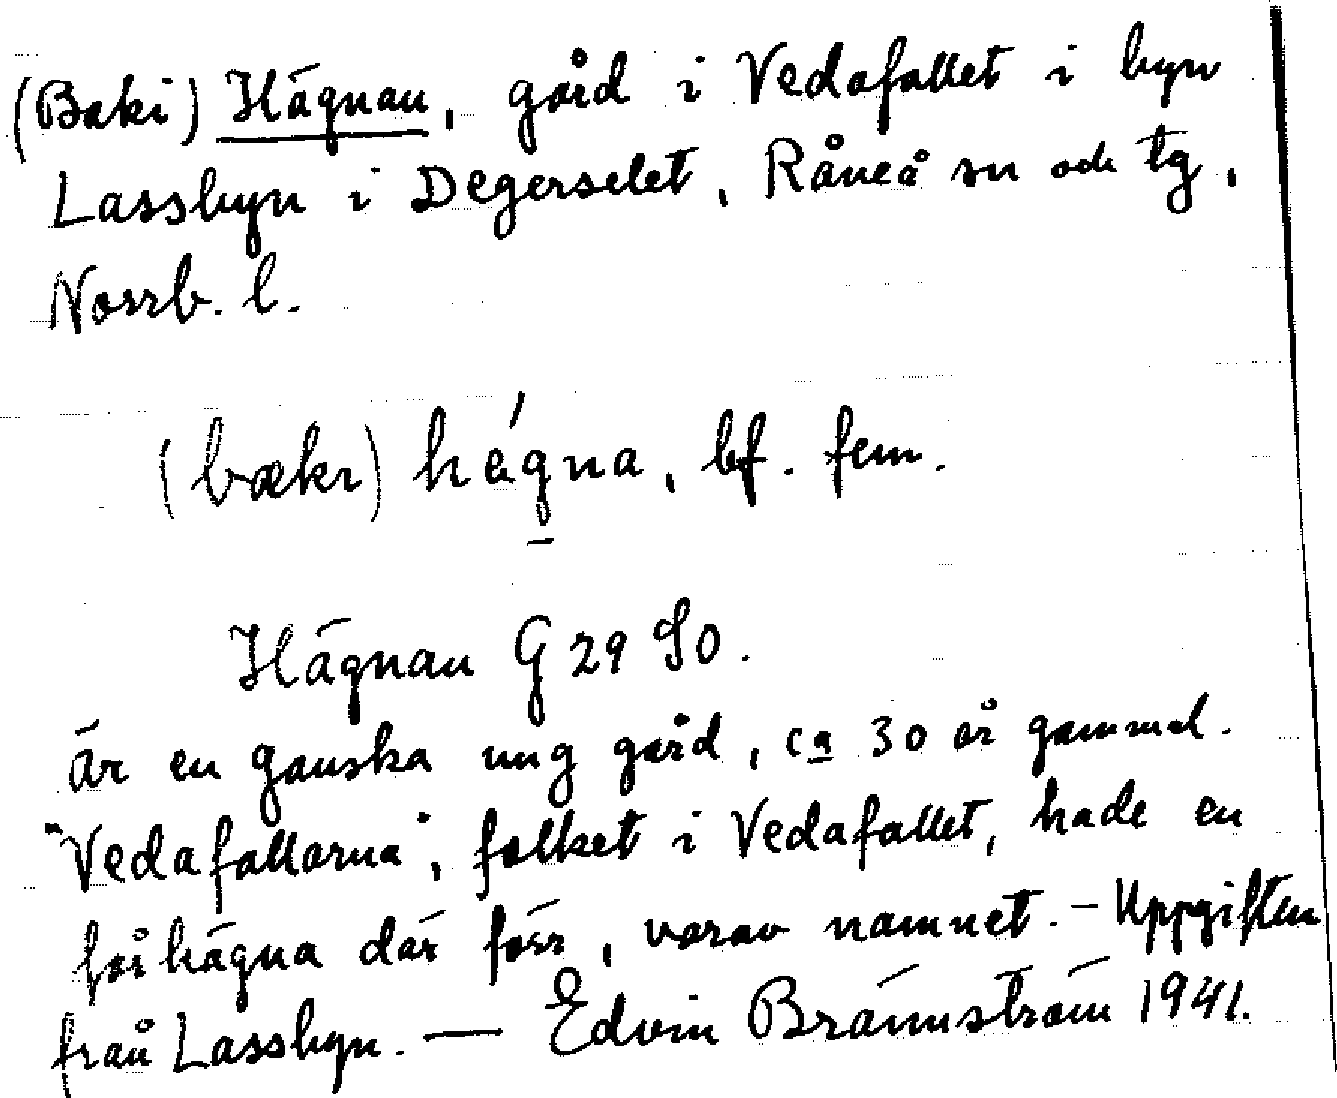 (Baki) Hägnan, gård i Vedafallet i byn
Lassbyn i Degerselet, Råneå sn och tg,
Norrb. l.
(bækı) hǽgna, bf. fem.
Hägnan G 29 SO.
är en ganska ung gård, ca 30 år gammal.
"Vedafallarna", folket i Vedafallet, hade en
fårhägna där förr, varav namnet. - Uppgiften
från Lassbyn. — Edvin Brännström 1941.